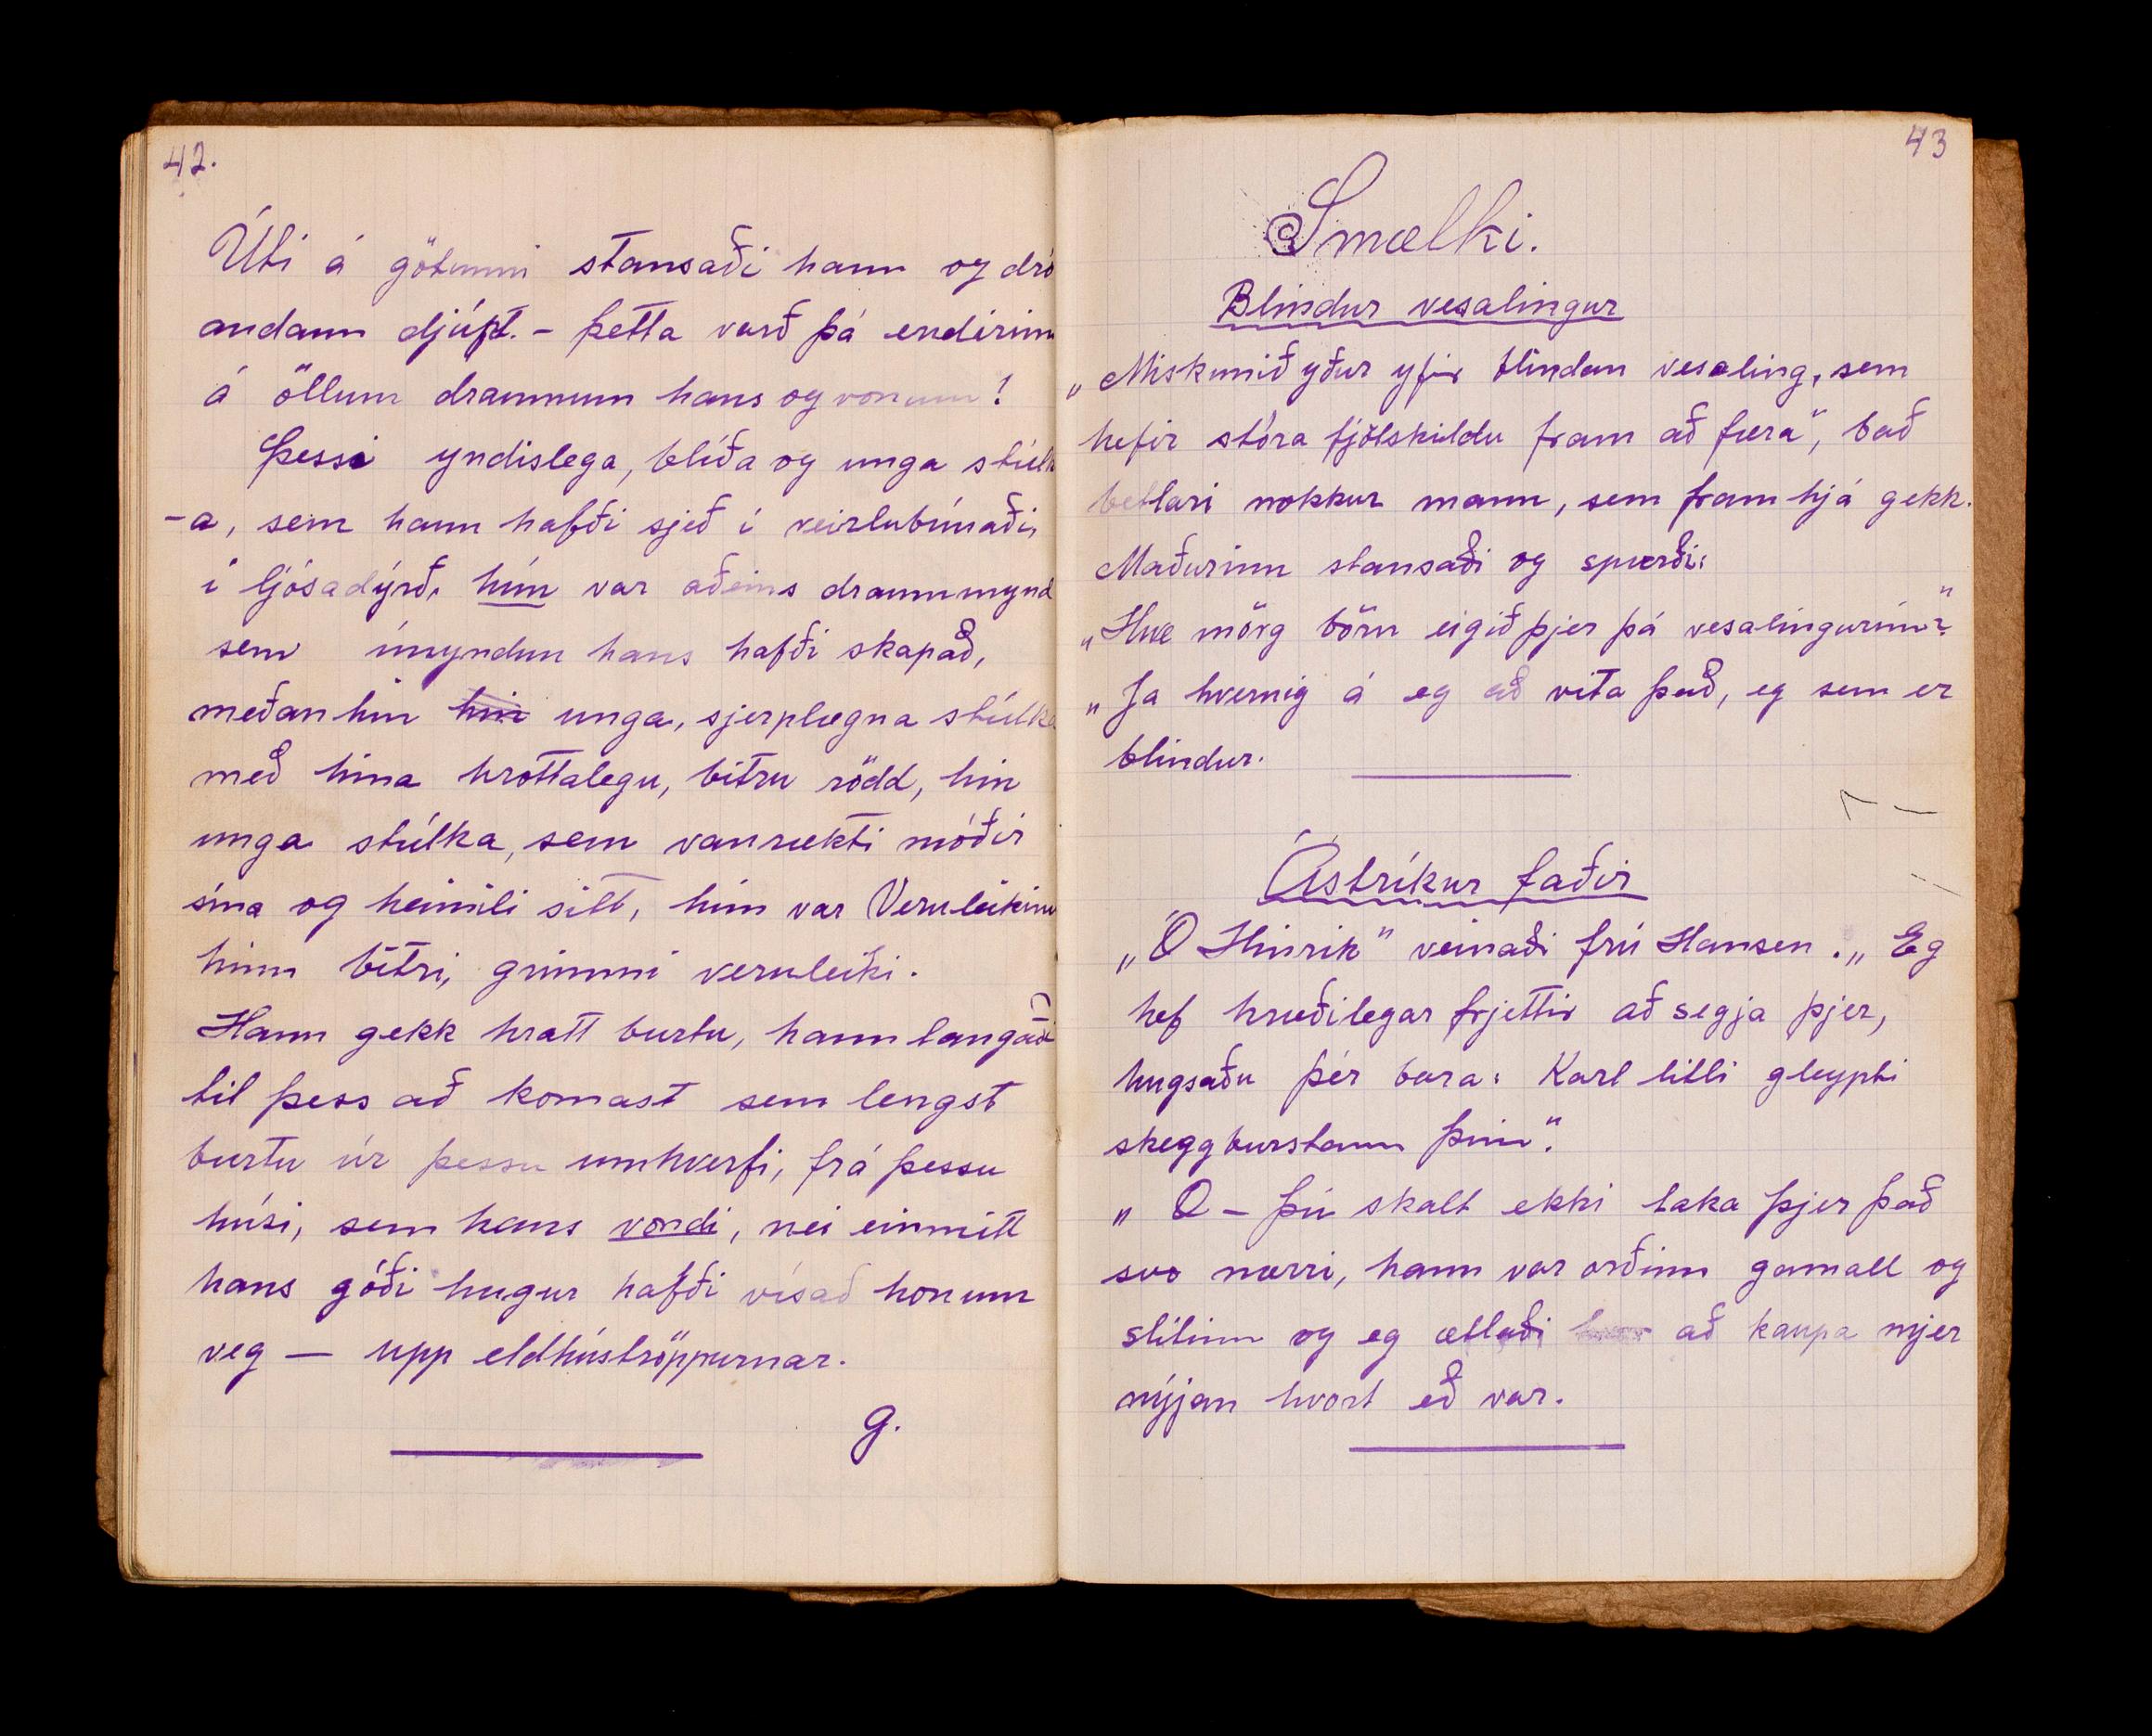 42.
Úti á götunni stansaði hann og dró
andann djúpt. - Þetta varð þá endirinn
á öllum draumum hans og vonum!
Þessi yndislega, blíða og unga stúlk
-a, sem hann hafði sjeð í veizlubúnaði,
í ljósadýrð, hún var aðeins draummynd
sem ímyndun hans hafði skapað,
meðan hin hin unga, sjerplægna stúlka
með hina hrottalegu, bitru rödd, hin
unga stúlka, sem vanrækti móðir
sína og heimili sitt, hún var Veruleikinn
hinn bitri, grimmi veruleiki.
Hann gekk hratt burtu, hann langaði
til þess að komast sem lengst
burtu úr þessu umhverfi, frá þessu
húsi, sem hans vondi, nei einmitt
hans góði hugur hafði vísað honum
veg — upp eldhúströppurnar.
G.
43
Smælki.
Blindur vesalingur
„Miskunið yður yfir blindan vesaling, sem
hefir stóra fjölskildu fram að færa", bað
betlari nokkur mann, sem fram hjá gekk.
Maðurinn stansaði og spurði:
„Hve mörg börn eigið þjer þá vesalingurinn?"
„Ja hvernig á eg að vita það, eg sem er
blindur.
Ástríkur faðir
„Ó Hinrik" veinaði frú Hansen. „Eg
hef hræðilegar frjettir að segja þjer,
hugsaðu þér bara: Karl litli gleypti
skeggburstann þinn".
„O - þú skalt ekki taka þjer það
svo nærri, hann var orðinn gamall og
slitinn og eg ætlaði að kaupa mjer
nýjan hvort eð var.